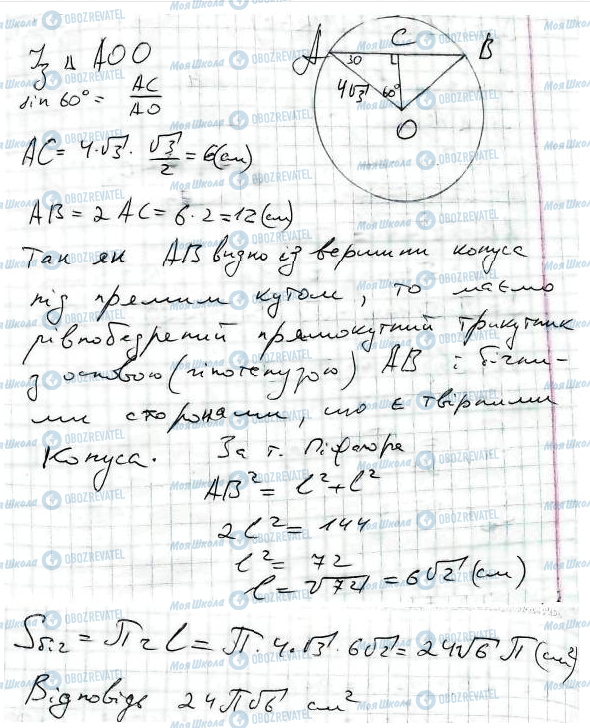 Із Δ АОО
sin 60° = AC/AO
AC = 4·√3 · √3/2 = 6(см)
AB = 2 AC = 6·2 = 12(см)
Так як АВ видно із вершини конуса
під прямим кутом, то маємо
рівнобедрений прямокутний трикутник
з основою (гіпотенузою) АВ і бічни-
ми сторонами, що є твірними
Конуса. За т. Піфагора
AB² = l² + l²
2l² = 144
l² = 72
l = √72 = 6√2 (см)
Sбіч = П r l = П · 4·√3 · 6√2 = 24√6 П (см²)
Відповідь 24П√6 см²
A C B
30
4√3 60°
O
Моя Школа OBOZREVATEL